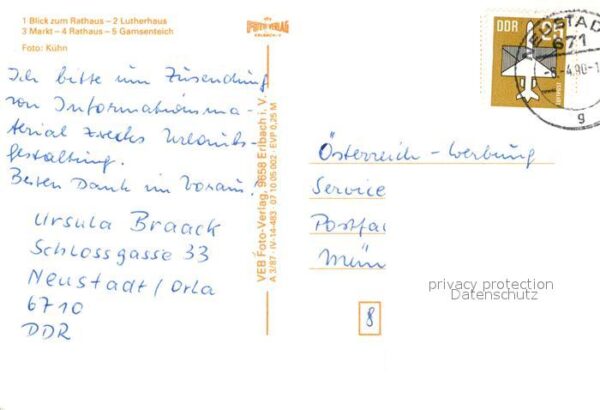 1 Blick zum Rathaus – 2 Lutherhaus
3 Markt – 4 Rathaus – 5 Gamsenteich
Foto: Kühn
Ich bitte um Zusendung
von Informationsma-
terial zwecks Urlaubs-
gestaltung.
Besten Dank im Voraus!
Ursula Braack
Schlossgasse 33
Neustadt/Orla
6710
DDR
VEB Foto-Verlag, 9658 Erlbach i. V.
A 3/87 · IV-14-483 · 07 10 05 002 · EVP 0,25 M
DDR 25
NEUSTADT
671
-4.90-1
g
Österreich-Werbung
Service
Postfa
Mün
8
privacy protection
Datenschutz